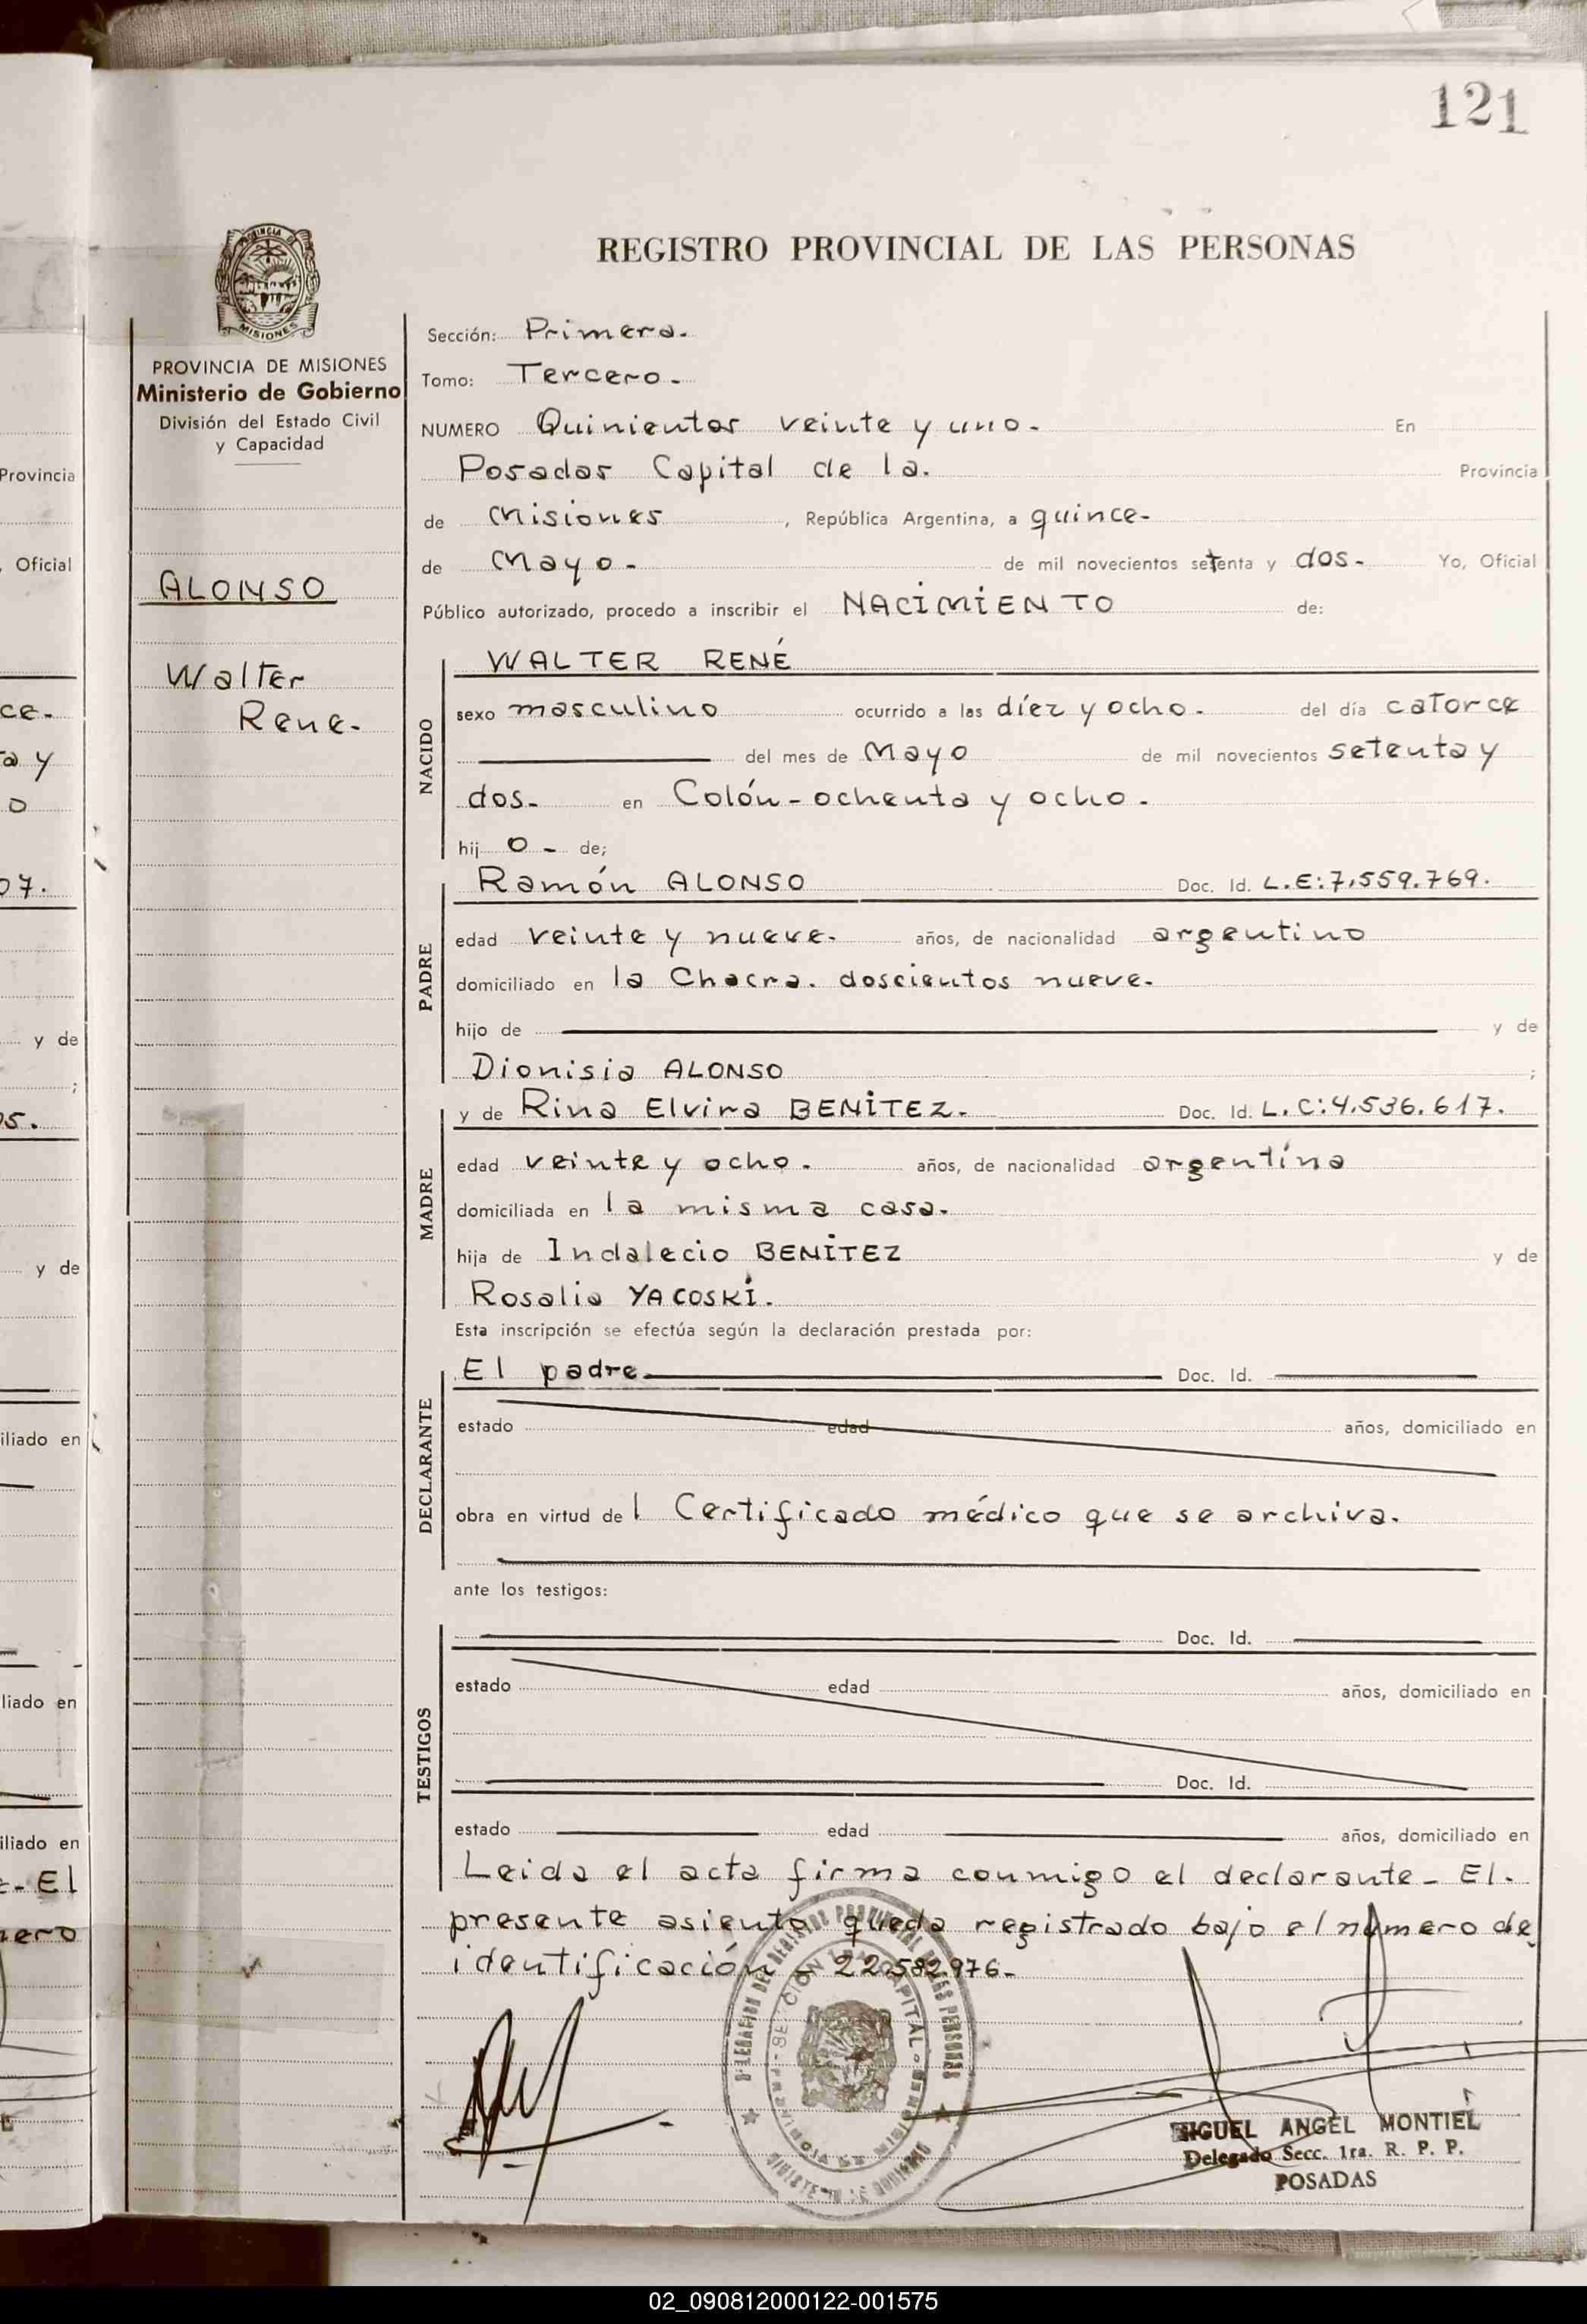 121
REGISTRO PROVINCIAL DE LAS PERSONAS
PROVINCIA DE
MISIONES
PROVINCIA DE MISIONES
Ministerio de Gobierno
División del Estado Civil
y Capacidad
ALONSO
Walter
Rene.
Sección: Primera.
Tomo: Tercero.
NUMERO Quinientos veinte y uno. En
Posadas Capital de la. Provincia
de Misiones, República Argentina, a quince-
de Mayo. de mil novecientos setenta y dos. Yo, Oficial
Público autorizado, procedo a inscribir el NACIMIENTO de:
NACIDO
WALTER RENÉ
sexo masculino ocurrido a las díez y ocho. del día catorce
del mes de Mayo de mil novecientos setenta y
dos. en Colón-ochenta y ocho.
hij o - de;
PADRE
Ramón ALONSO Doc. Id. L.E:7.559.769.
edad veinte y nueve. años, de nacionalidad argentino
domiciliado en la Chacra. doscientos nueve.
hijo de y de
Dionisia ALONSO ;
MADRE
y de Rina Elvira BENÍTEZ. Doc. Id. L.C:4.536.617.
edad veinte y ocho. años, de nacionalidad argentína
domiciliada en la misma casa.
hija de Indalecio BENÍTEZ y de
Rosalia YACOSKI.
Esta inscripción se efectúa según la declaración prestada por:
DECLARANTE
El padre Doc. Id.
estado edad años, domiciliado en
obra en virtud del Certificado médico que se archiva.
ante los testigos:
TESTIGOS
Doc. Id.
estado edad años, domiciliado en
Doc. Id.
estado edad años, domiciliado en
Leida el acta firma conmigo el declarante_ El.
presente asiento queda registrado bajo el número de
identificación - 22582976-
MIGUEL ANGEL MONTIEL
Delegado Secc. 1ra. R. P. P.
POSADAS
Provincia
, Oficial
ce.
a y
o
07.
y de
;
05.
y de
iliado en
liado en
iliado en
- El
nero
02_090812000122-001575